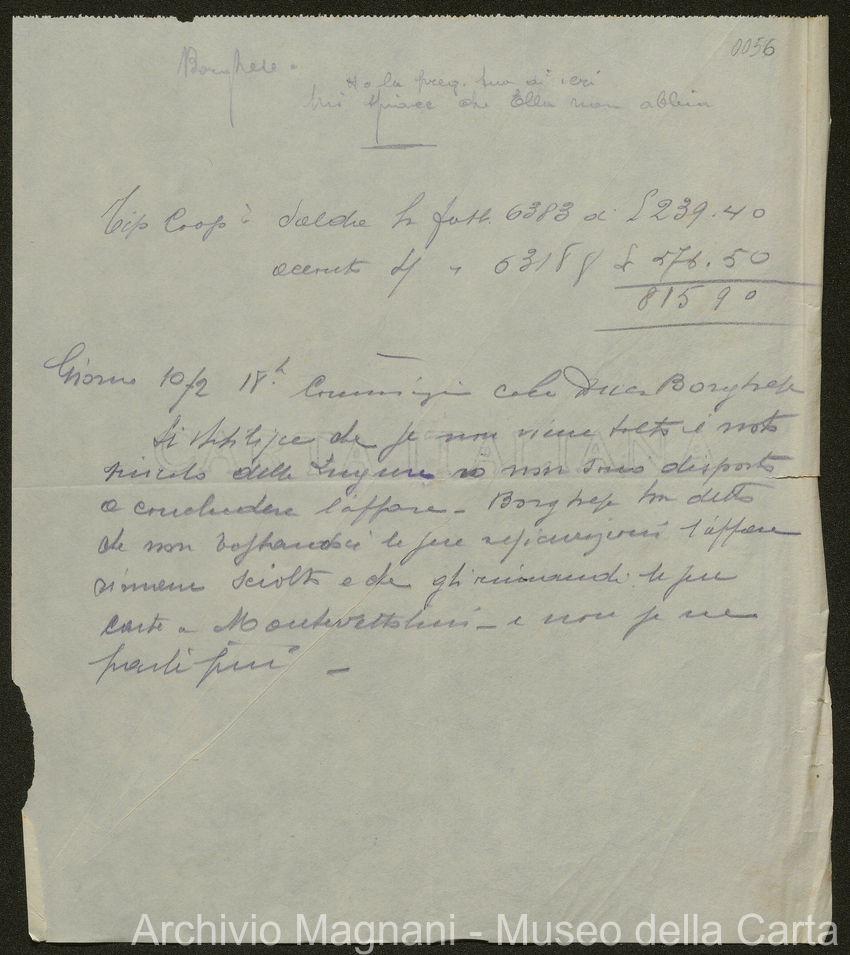 0056
Borghese.
Ho la preg. sua di ieri
Mi spiace che Ella non abbia
Tip Coopª Saldo fatt. 6383 di £ 239.40
acconto " 6318 £ 576.50
815 90
Giorno 10/2 18h Comunição colo Duca Borghese
che se non viene tolto il noto
vincolo delle io non sono disposto
a concludere l'affare - Borghese ha detto
che non bastandoci le sue assicurazioni l'affare
rimane sciolto e che gli rimandi le sue
carte a Montevettolini - e non se ne
parli più -
CARTA ITALIANA
Archivio Magnani - Museo della Carta